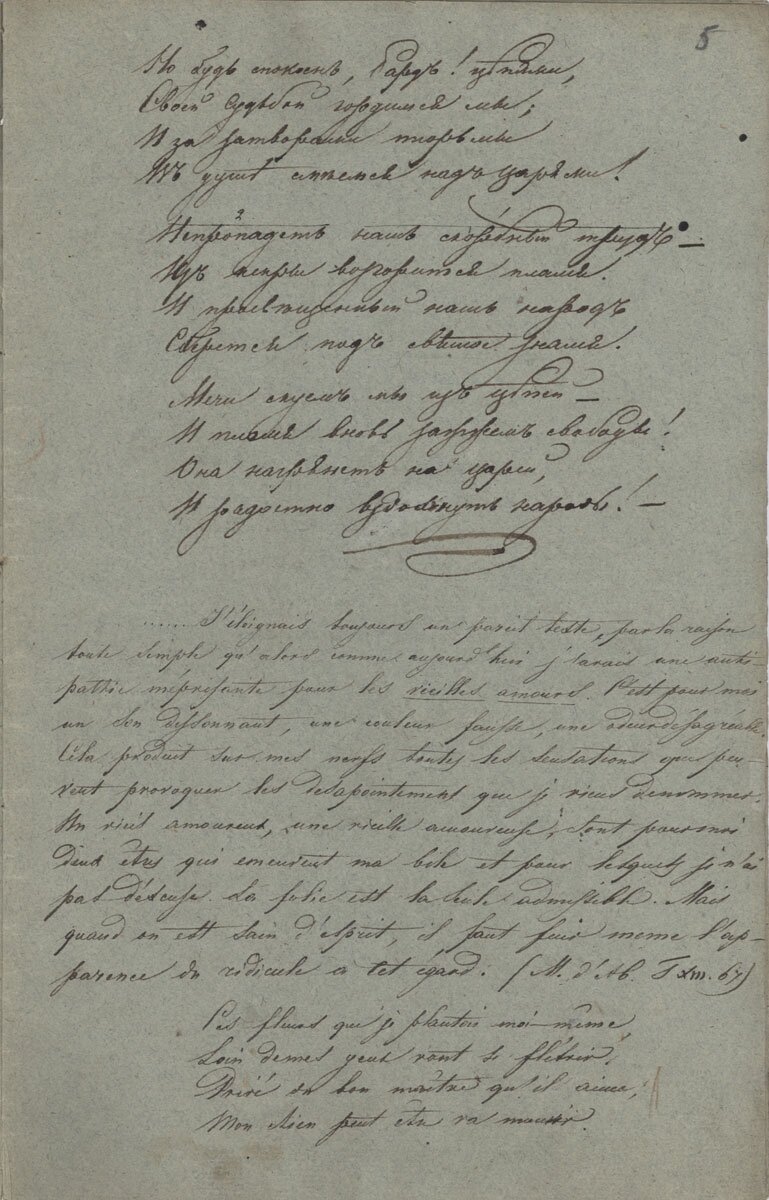 5
Но будь спокоенъ, Бардъ! цѣпями,
Своей судьбой гордимся мы;
И за затворами тюрьмы
Въ душѣ смѣемся надъ царями!
Непропадетъ нашъ скорбный трудъ —
Изъ искры возгорится пламя.
И просвѣщенный нашъ народъ
Сберется подъ святое знамя.
Мечи скуемъ мы изъ цѣпей —
И пламя вновь зажжемъ свободы!
Она нагрянетъ на царей,
И радостно вздохнутъ народы! —
....... J'éloignais toujours un pareil texte, par la raison
toute simple qu'alors comme aujourd'hui j'avais une anti-
pathie méprisante pour les vieilles amours. C'est pour moi
un son dissonnant, une couleur fausse, une odeur désagréable.
Cela produit sur mes nerfs toutes les sensations que peu-
vent provoquer les desapointement que je viens denommer.
Un vieil amoureux, une vieille amoureuse, sont pour moi
deux êtres qui emeuvent ma bile et pour lesquels je n'ai
pas d'excuse. La folie est la seule admissible. Mais
quand on est sain d'esprit, il faut fuir meme l'ap-
parence du ridicule a cet egard. (M. d'Ab. T. XIII. 67)
Ces fleurs que je plantois moi-même
Loin de mes yeux vont se flétrir.
Privé du bon maître qu'il aime,
Mon chien peut être va mourir.